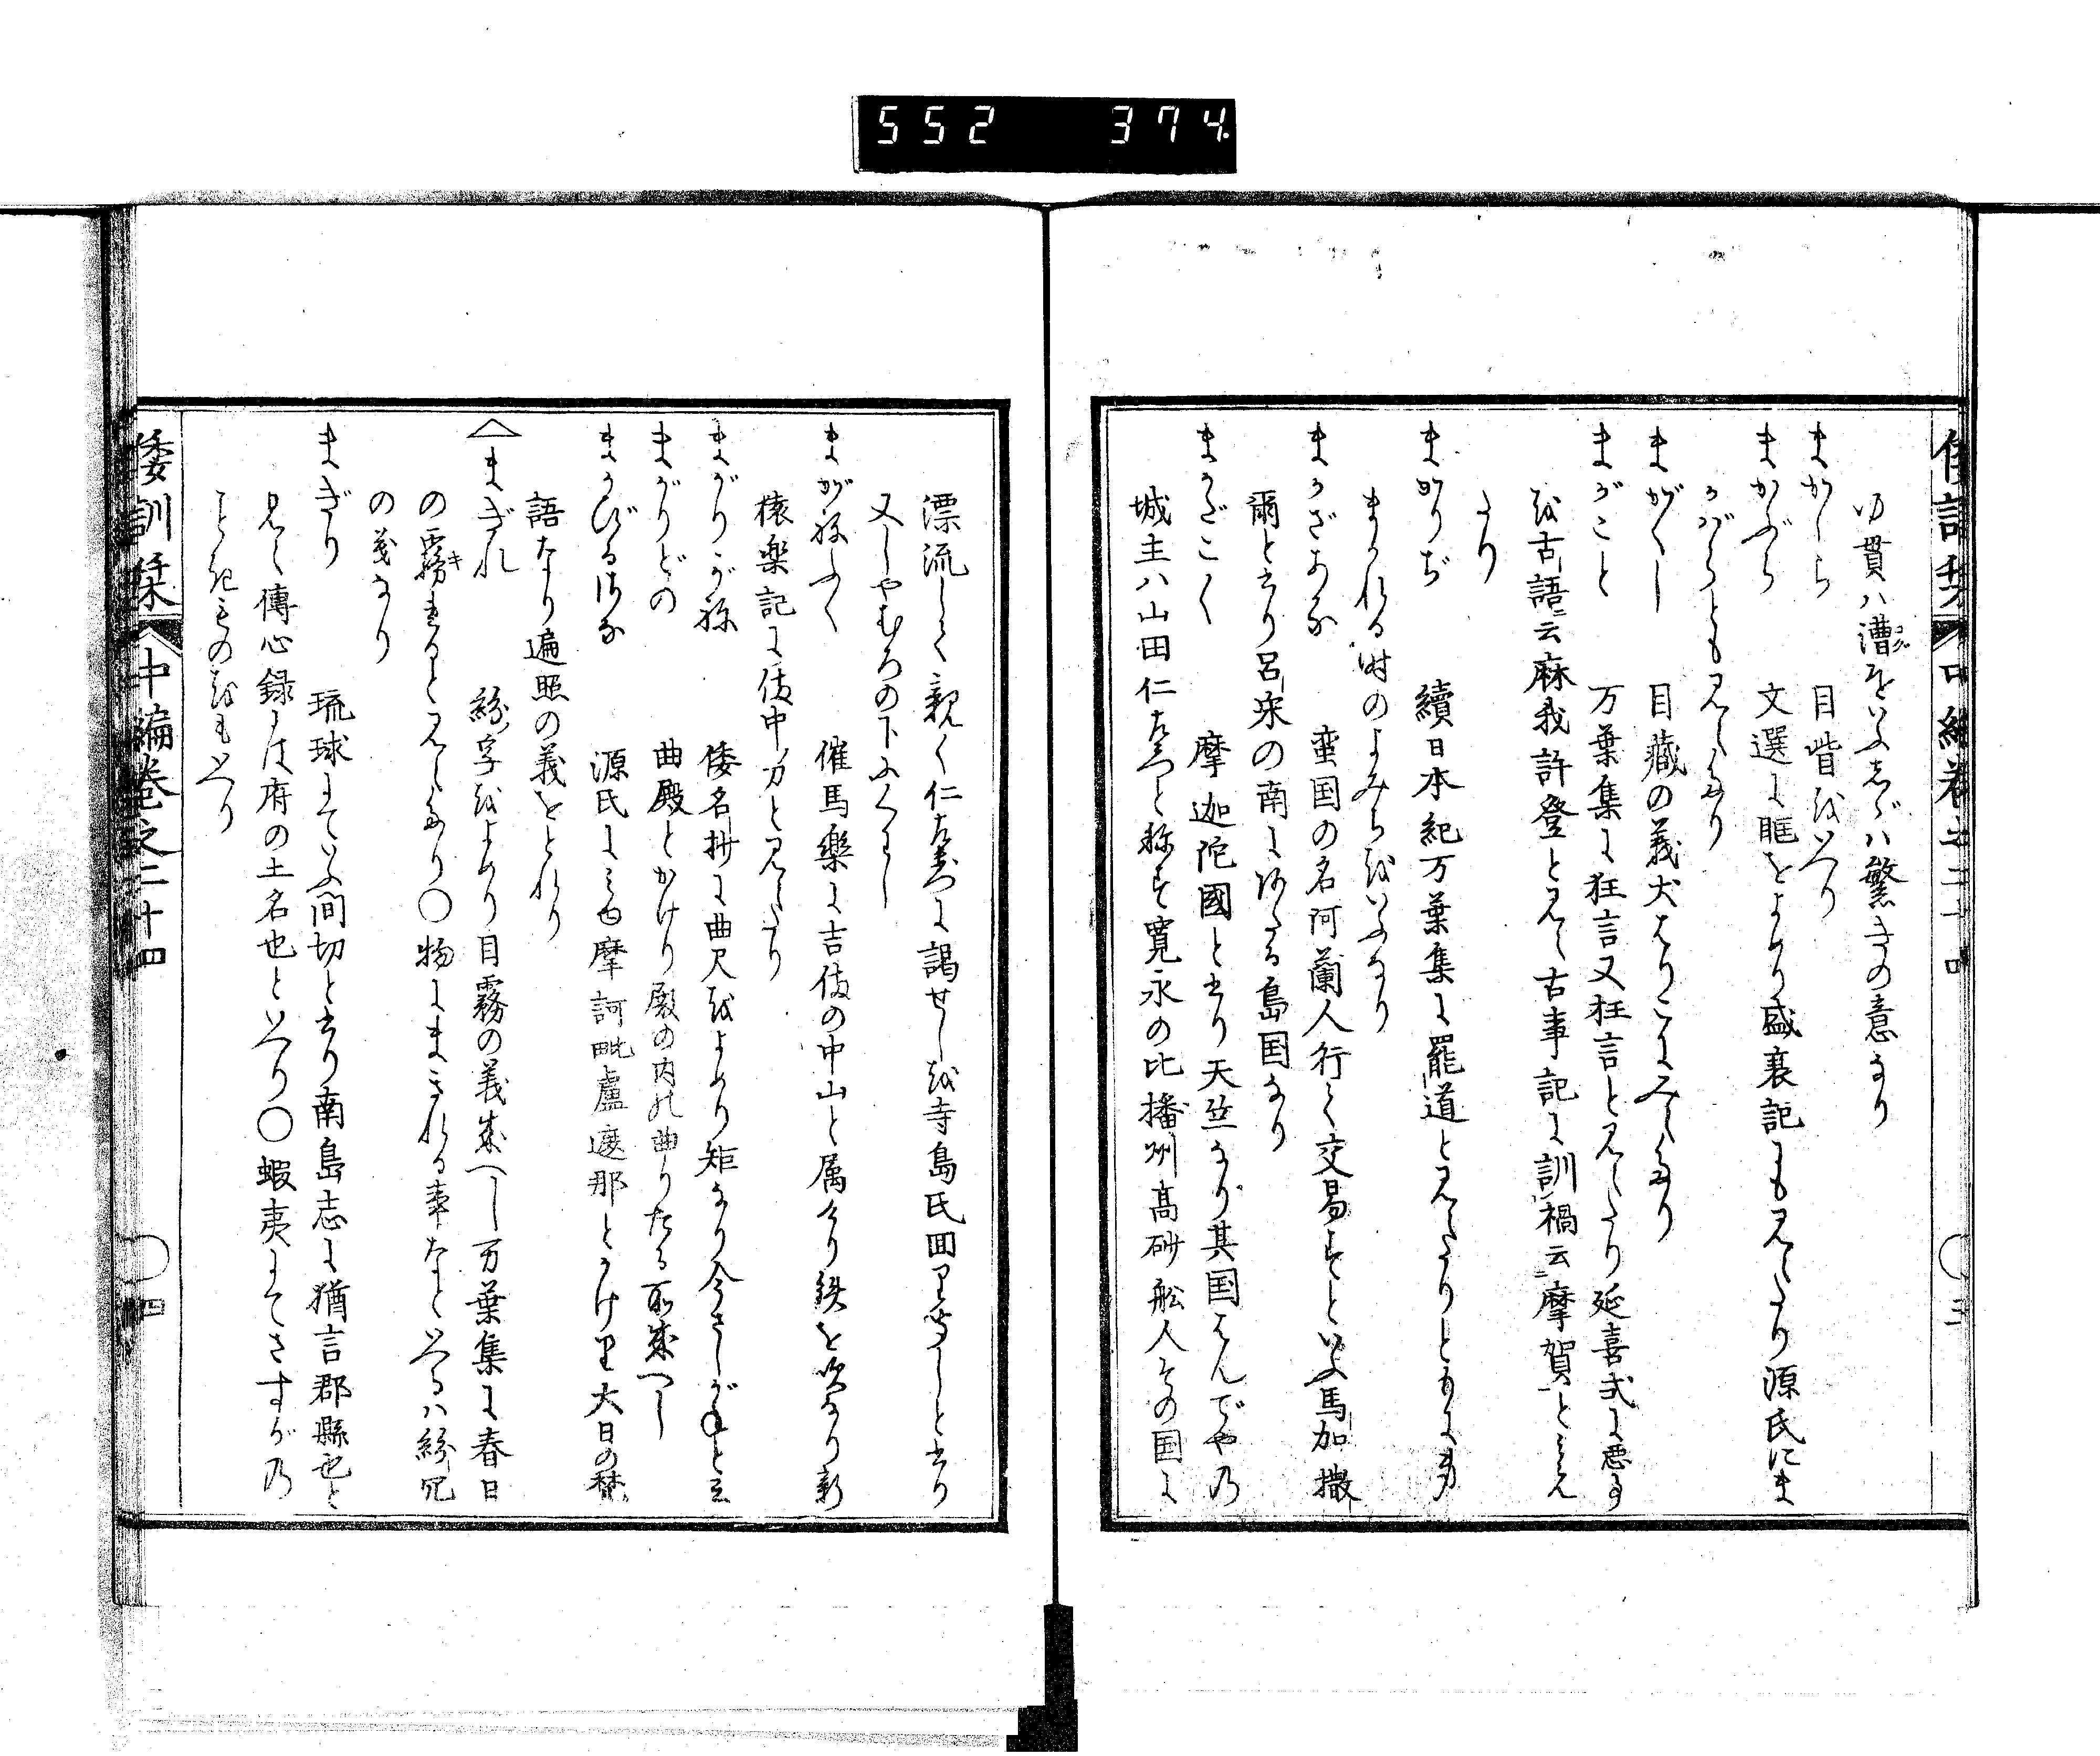 552 374
ゆ貫ハ漕をいふしかハ繁きの意なり
まかしら 目眥をいへり
まかぶら 文選に眶をよめり盛衰記にも見えたり源氏にま
かぶらとも見えたり
まがくし 目蔵の義犬はりこにみえたり
まがこと 万葉集に狂言又枉言と見えたり延喜式に悪事
を古語云麻我許登と見え古事記に訓禍云摩賀とみえ
たり
まかりぢ 續日本紀万葉集に罷道と見えたりともに身
まかれる時のよみちをいふなり
まかざある 蛮国の名阿蘭人行て交易すといふ馬加撒
爾と書り呂宋の南にある島国なり
まかだこく 摩迦陀國と書り天竺なり其国はんでや乃
城主ハ山田仁左衛門と称す寛永の比播州高砂舩人その国に
漂流して親く仁左衛門に謁せしを寺島氏聞り等しと書り
又しやむろの下にくはし
まがねふく 催馬樂に吉備の中山と属けり鉄を吹なり新
猿楽記に備中刀と見えたり
まがりがね 倭名抄に曲尺をよめり矩なり今さしがねと云
まがりどの 曲殿とかけり殿の内の曲りたる所成へし
まかびるさな 源氏にみゆ摩訶毗盧遮那とかけり大日の梵
語なり遍照の義をとれり
まぎれ 紛字をよめり目霧の義成へし万葉集に春日
の霧キまれてと見えたり〇物にまきれる事なといへるハ紛冗
の義なり
まぎり 琉球にていふ間切と書り南島志に猶言郡縣也と
見え傳心録には府の土名也といへり〇蝦夷にてさすが乃
こときものをもいへり
倭訓栞 中編巻之二十四 四